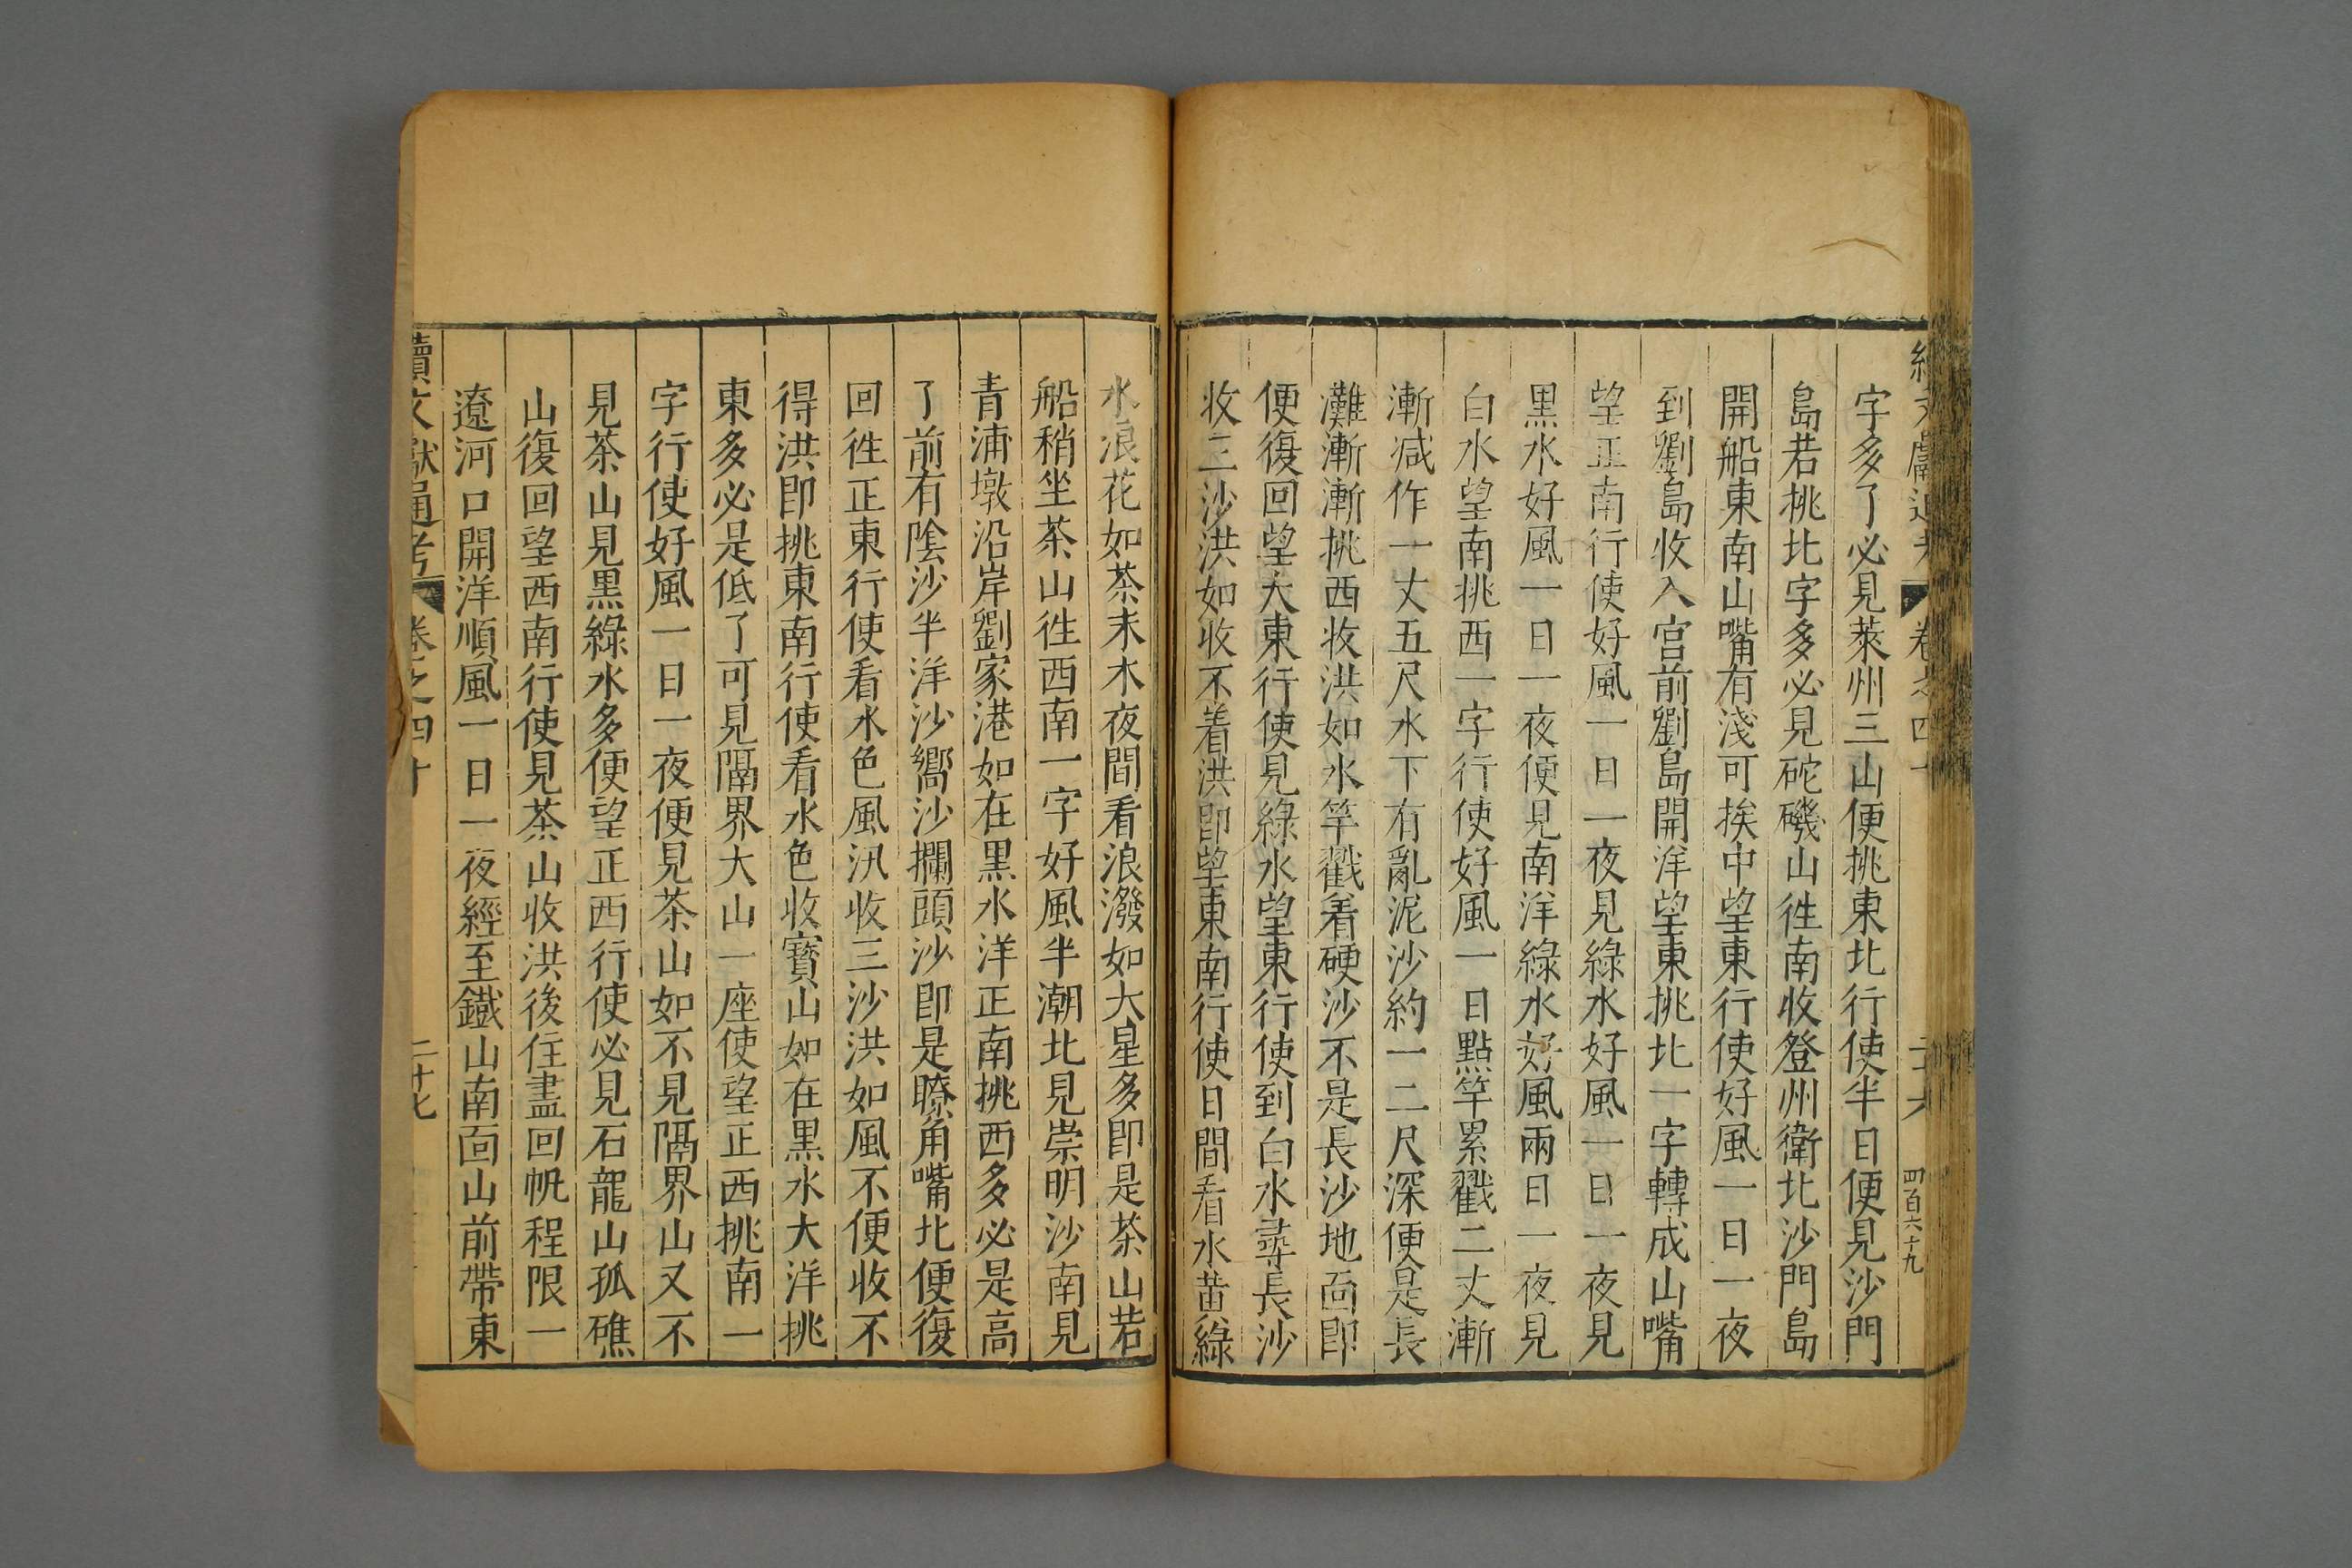 卷之四十
四百六十九
字多了必見萊州三山便挑東北行使半日便見沙門
島若挑北字多必見砣磯山徃南收登州衛北沙門島
開船東南山嘴有淺可挨中望東行使好風一日一夜
到劉島收入宫前劉島開洋望東挑北一字轉成山嘴
望正南行使好風一日一夜見綠水好風一日一夜見
黒水好風一日一夜便見南洋綠水好風兩日一夜見
白水望南挑西一字行使好風一日點竿累戳二丈漸
漸减作一丈五尺水下有亂泥沙約一二尺深便是長
灘漸漸挑西收洪如水竿戳着硬沙不是長沙地靣即
便復回望大東行使見綠水望東行使到白水尋長沙
收三沙洪如收不着洪即望東南行使日間看水黄綠
水浪花如茶末木夜間看浪潑如大星多即是茶山若
船稍坐茶山徃西南一字好風半潮北見崇明沙南見
青浦墩沿岸劉家港如在黒水洋正南挑西多必是高
了前有陰沙半洋沙嚮沙攔頭沙即是瞭角嘴北便復
回徃正東行使看水色風汛收三沙洪如風不便收不
得洪即挑東南行使看水色收寳山如在黒水大洋挑
東多必是低了可見隔界大山一座使望正西挑南一
字行使好風一日一夜便見茶山如不見隔界山又不
見茶山見黒綠水多便望正西行使必見石龍山孤礁
山復回望西南行使見茶山收洪後住盡回帆程限一
遼河口開洋順風一日一夜經至鐵山南靣山前帶東
續文獻通考
卷之四十
二十七